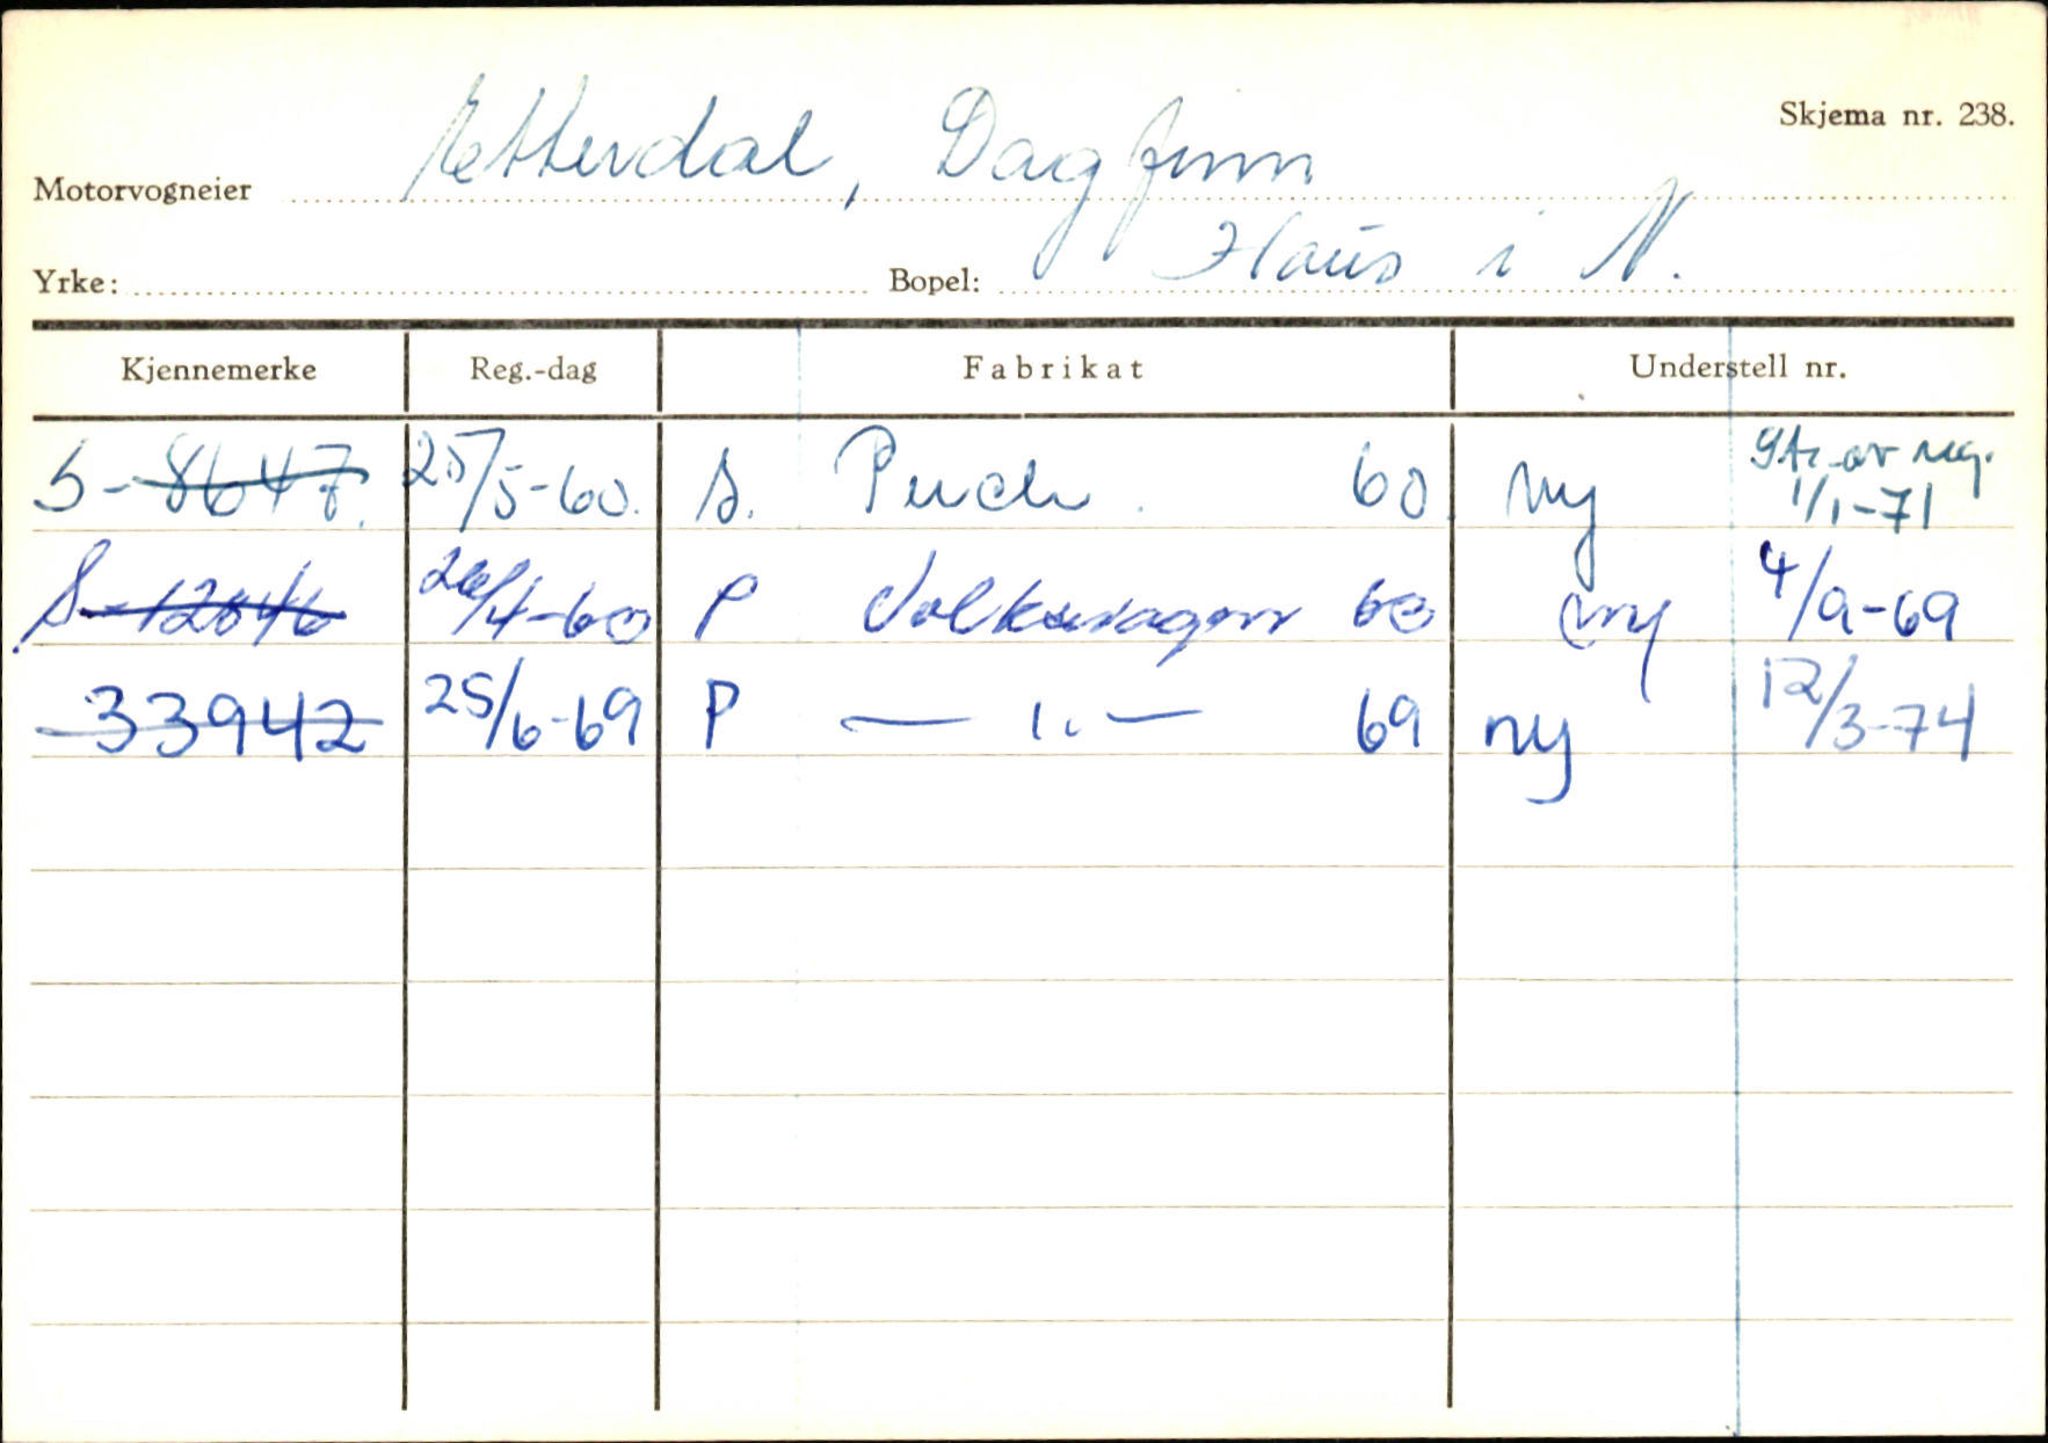 Skjema nr. 238.
Motorvogneier Ytterdal, Dagfinn
Yrke: Bopel: Haus i N.
Kjennemerke Reg.-dag Fabrikat Understell nr.
S-8647. 25/5-60. S. Puch. 60 ny Str. av reg. 1/1-71
S-12846 26/4-60 P Volkswagen 60 ny 4/9-69
33942 25/6-69 P — " — 69 ny 12/3-74